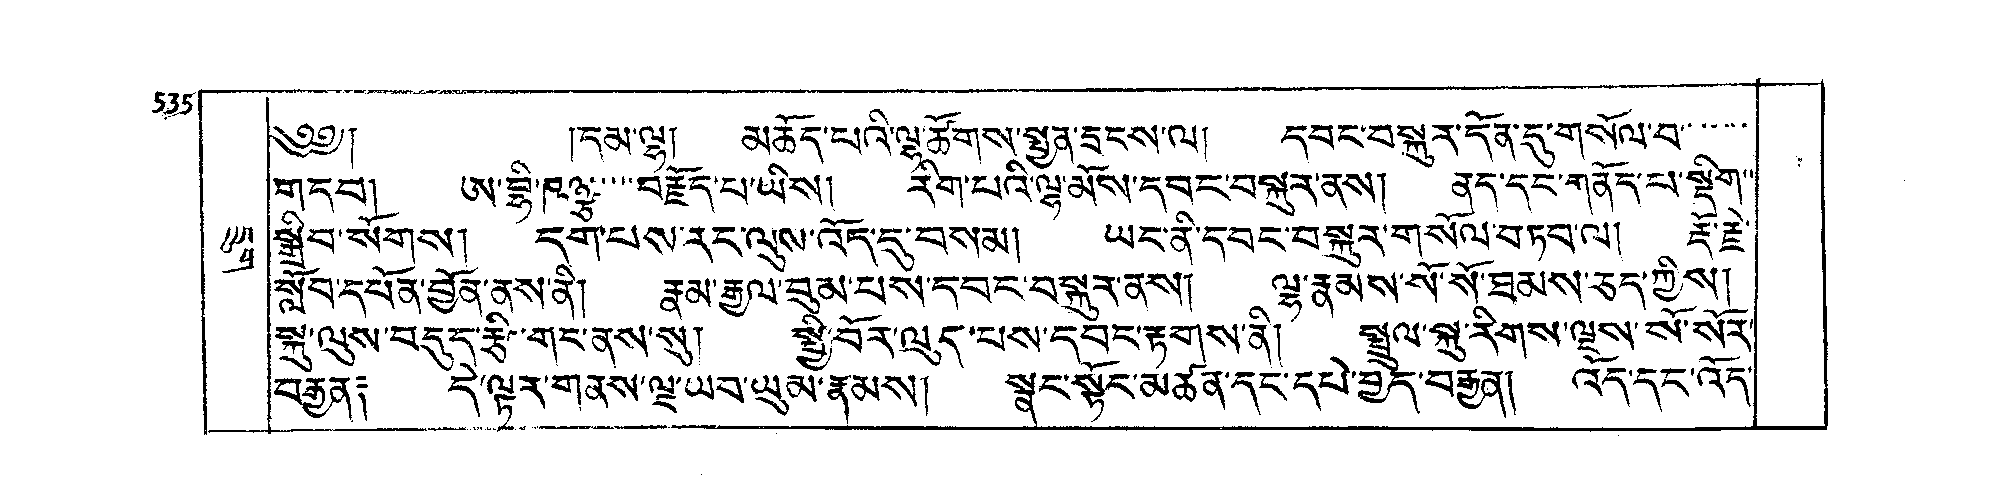 535
༄༅། །དམ་ལྷ། མཆོད་པའི་ལྷ་ཚོགས་སྤྱན་དྲངས་ལ། དབང་བསྐུར་དོན་དུ་གསོལ་བ་
གདབ། ཨ་བྷི་ཥིཉྩ་བརྗོད་པ་ཡིས། རིག་པའི་ལྷ་མོས་དབང་བསྐུར་ནས། ནད་དང་གནོད་པ་སྡིག་
སྒྲིབ་སོགས། དག་པས་རང་ལུས་འོད་དུ་བསམ། ཡང་ནི་དབང་བསྐུར་གསོལ་བཏབ་ལ། རྡོ་རྗེ་
སློབ་དཔོན་བྱོན་ནས་ནི། རྣམ་རྒྱལ་བུམ་པས་དབང་བསྐུར་ནས། ལྷ་རྣམས་སོ་སོ་ཐམས་ཅད་ཀྱིས།
སྐུ་ལུས་བདུད་རྩི་གང་ནས་སུ། སྤྱི་བོར་ལུད་པས་དབང་རྟགས་ནི། སྤྲུལ་སྐུ་རིགས་ལྔས་སོ་སོར་
བརྒྱན༔ དེ་ལྟར་གནས་ལྔ་ཡབ་ཡུམ་རྣམས། སྣང་སྟོང་མཚན་དང་དཔེ་བྱེད་བརྒྱན། འོད་དང་འོད་